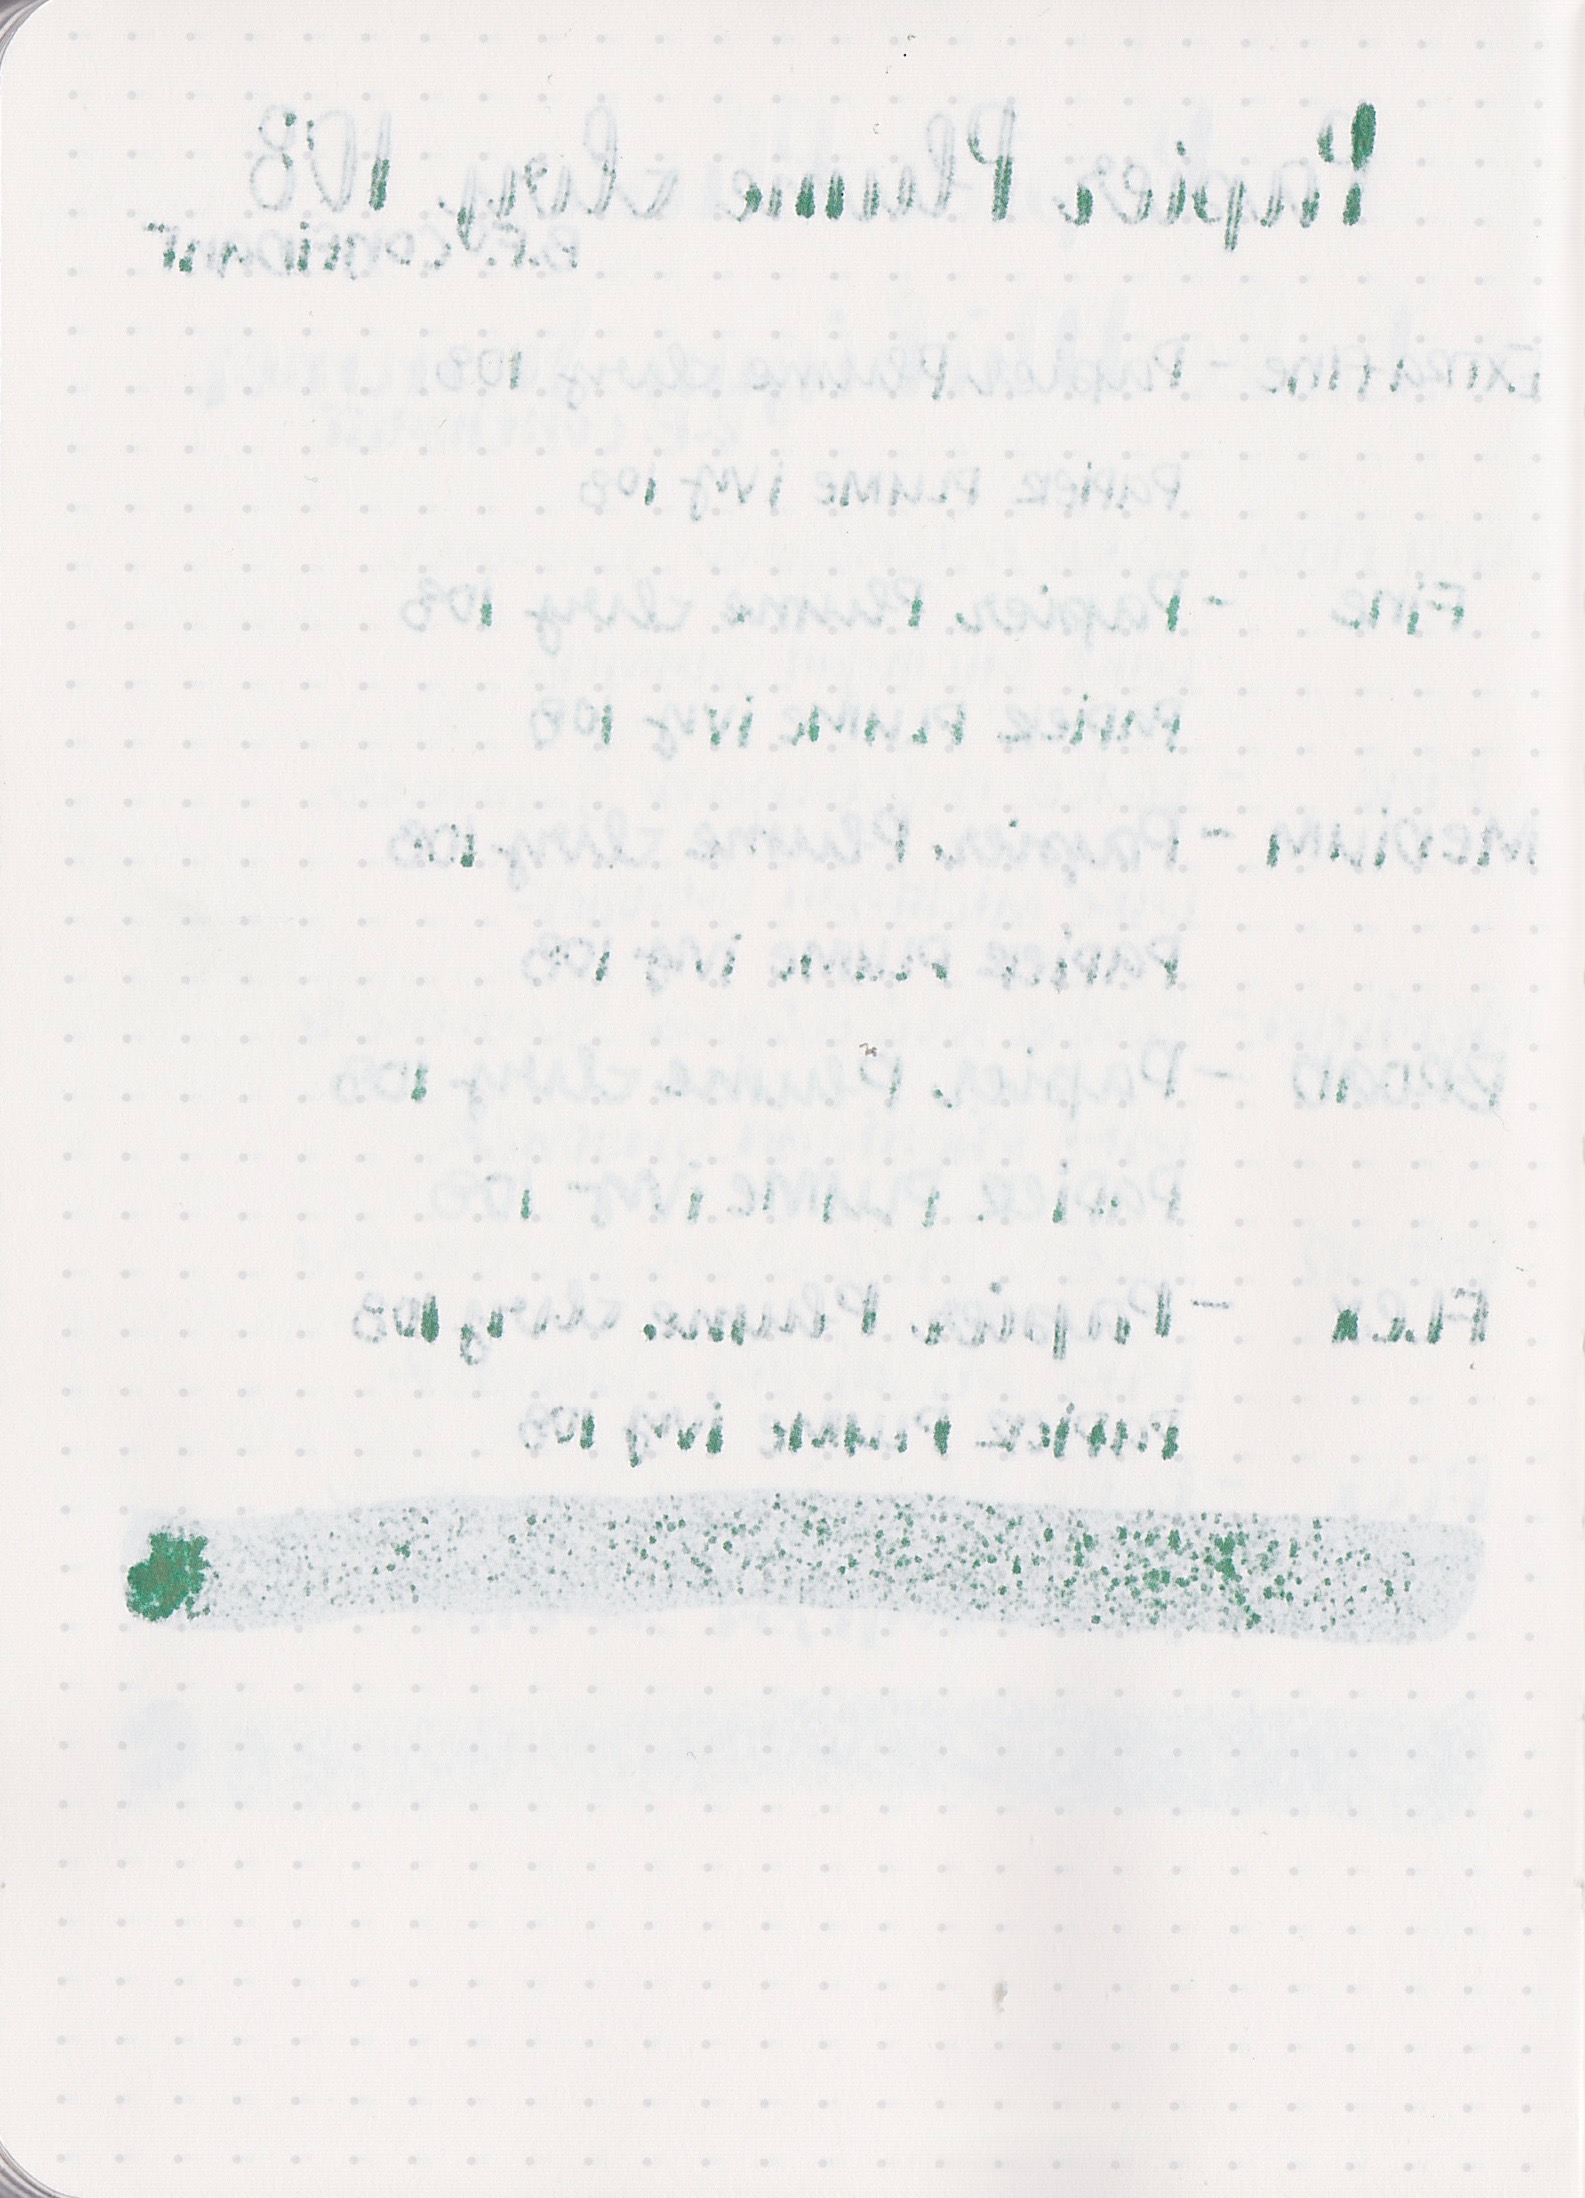 Papier Plume Ivy 108
B.E.F. CONFIDANT
Extra Fine - Papier Plume Ivy 108
Papier Plume Ivy 108
Fine - Papier Plume Ivy 108
Papier Plume Ivy 108
Medium - Papier Plume Ivy 108
Papier Plume Ivy 108
Broad - Papier Plume Ivy 108
Papier Plume Ivy 108
Flex - Papier Plume Ivy 108
Papier Plume Ivy 108